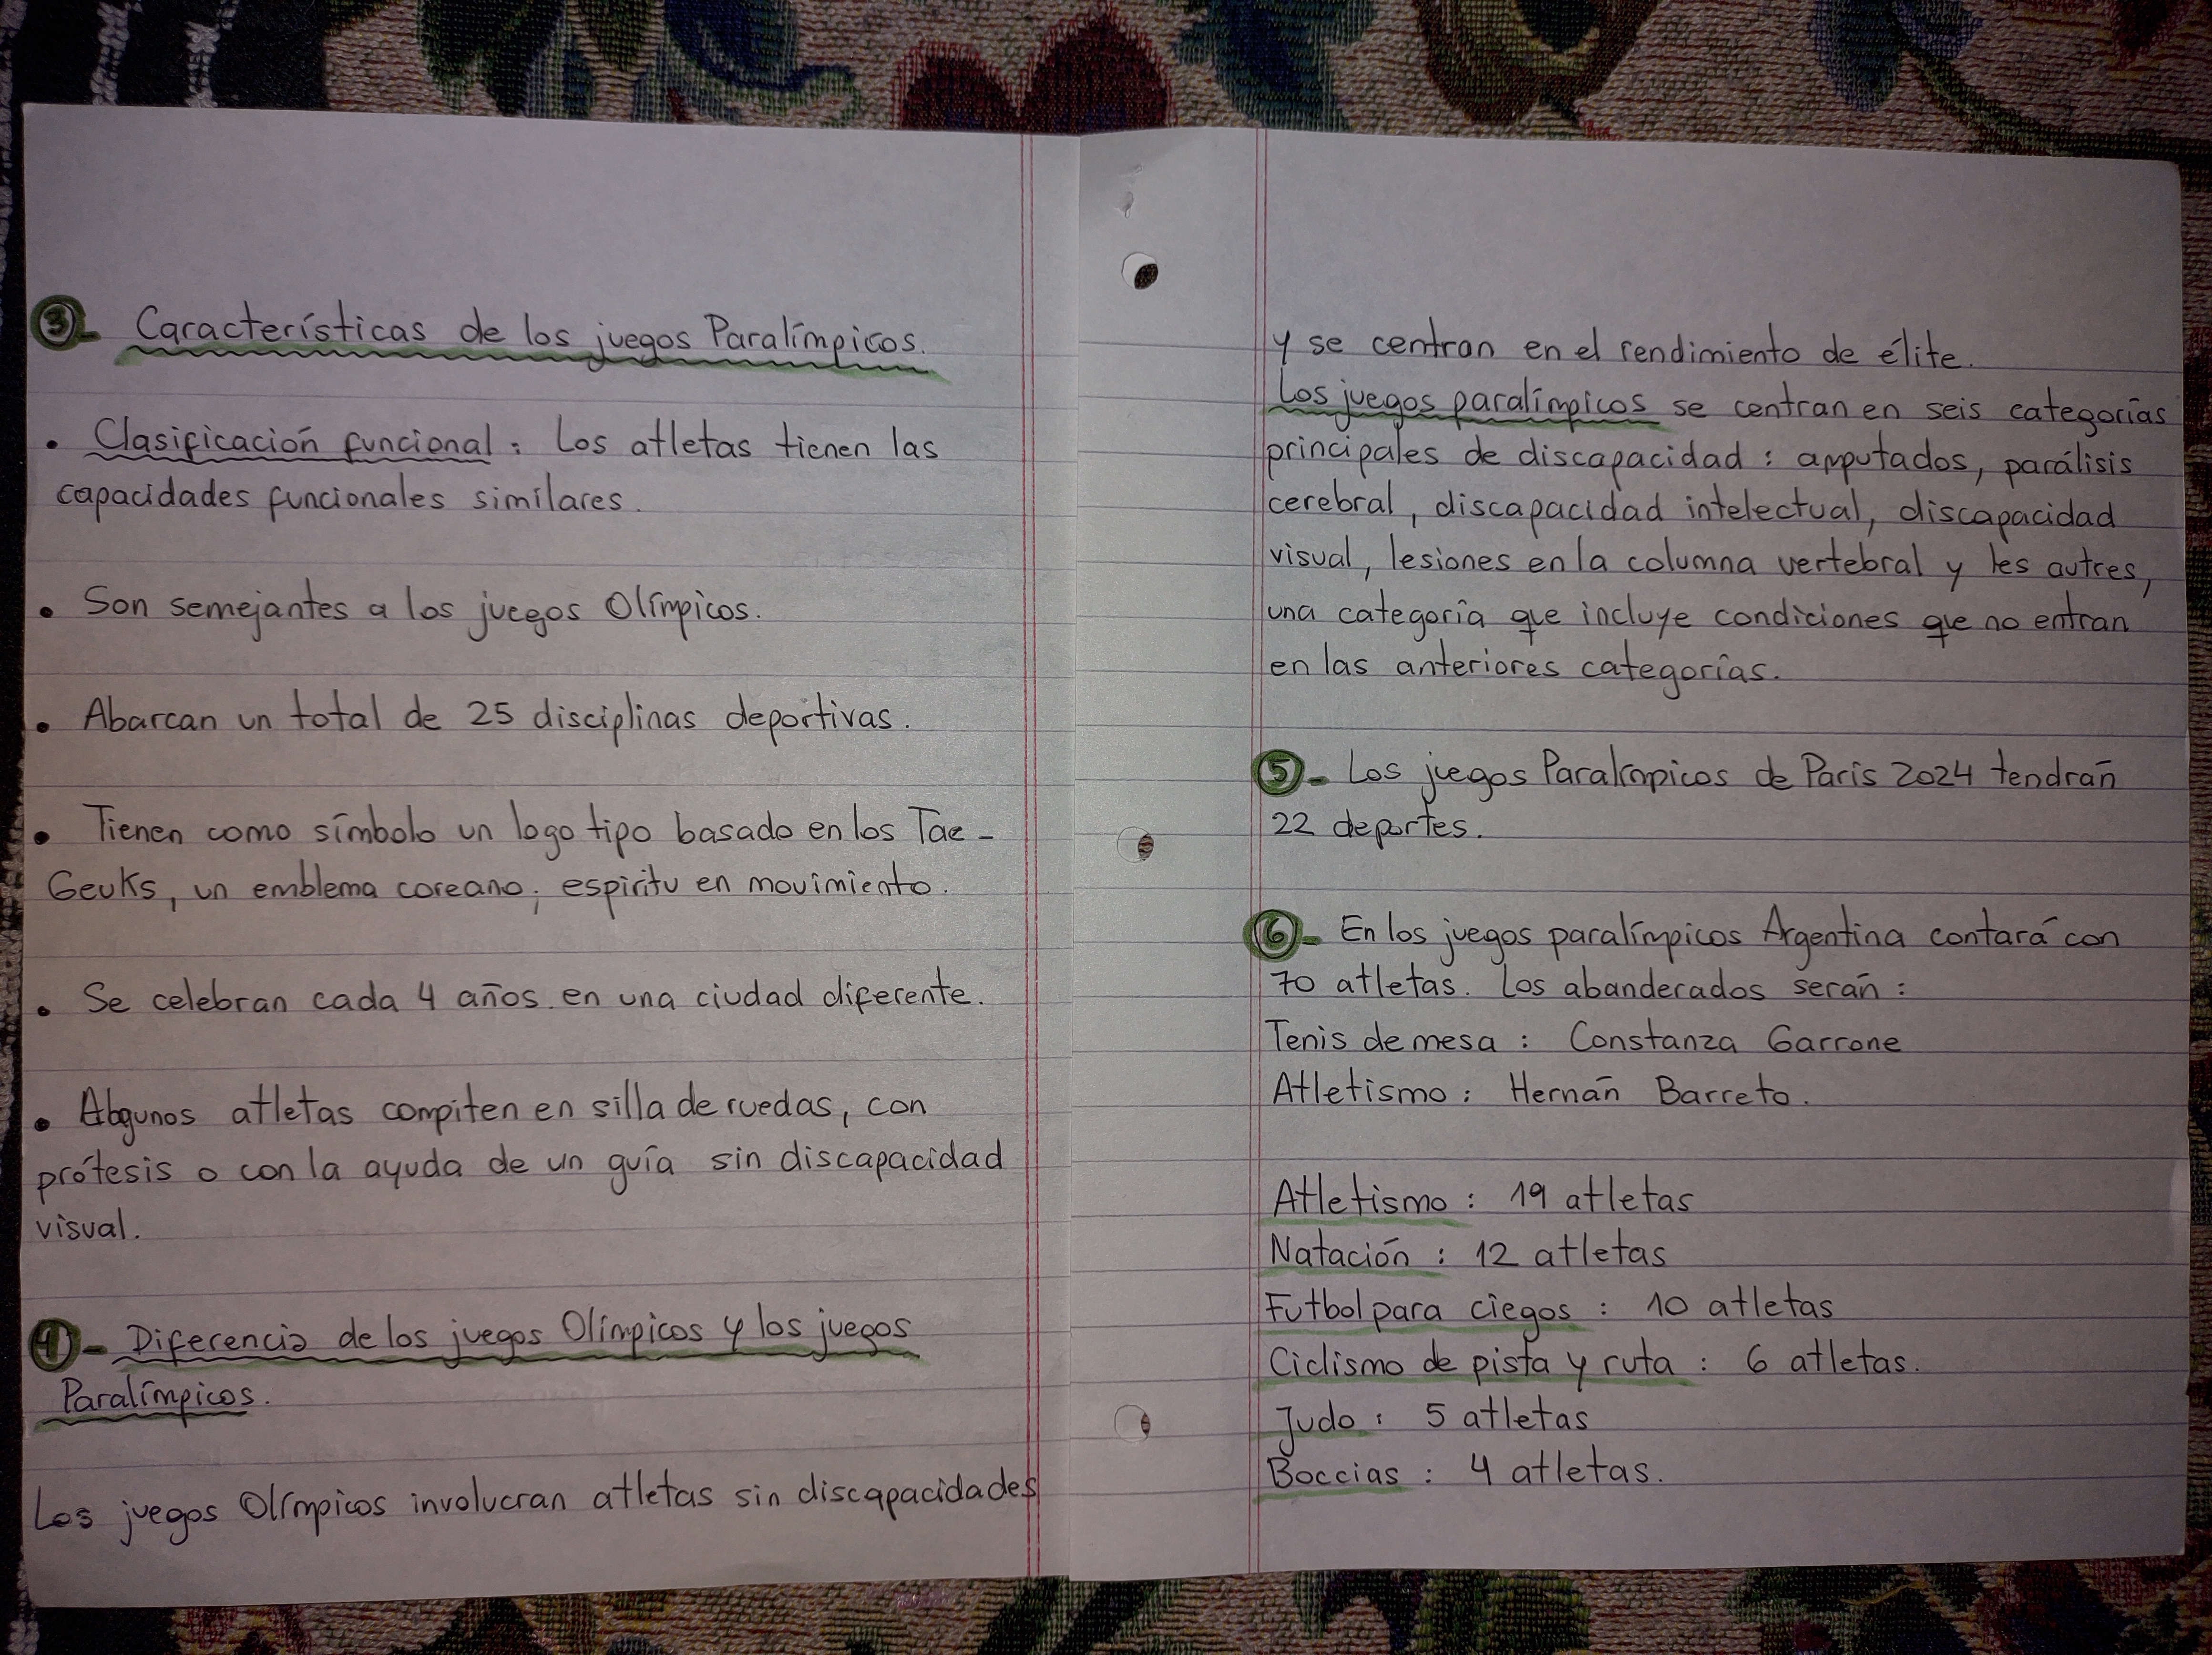 3- Características de los juegos Paralímpicos.
• Clasificación funcional: Los atletas tienen las
capacidades funcionales similares.
• Son semejantes a los juegos Olímpicos.
• Abarcan un total de 25 disciplinas deportivas.
• Tienen como símbolo un logo tipo basado en los Tae-
Geuks, un emblema coreano; espíritu en movimiento.
• Se celebran cada 4 años en una ciudad diferente.
• Algunos atletas compiten en silla de ruedas, con
prótesis o con la ayuda de un guía sin discapacidad
visual.
4- Diferencia de los juegos Olímpicos y los juegos
Paralímpicos.
Los juegos Olímpicos involucran atletas sin discapacidades
y se centran en el rendimiento de élite.
Los juegos paralímpicos se centran en seis categorías
principales de discapacidad: amputados, parálisis
cerebral, discapacidad intelectual, discapacidad
visual, lesiones en la columna vertebral y les autres,
una categoría que incluye condiciones que no entran
en las anteriores categorías.
5- Los juegos Paralímpicos de París 2024 tendrán
22 deportes.
6- En los juegos paralímpicos Argentina contará con
70 atletas. Los abanderados serán:
Tenis de mesa: Constanza Garrone
Atletismo: Hernán Barreto.
Atletismo: 19 atletas
Natación: 12 atletas
Futbol para ciegos: 10 atletas
Ciclismo de pista y ruta: 6 atletas.
Judo: 5 atletas
Boccias: 4 atletas.